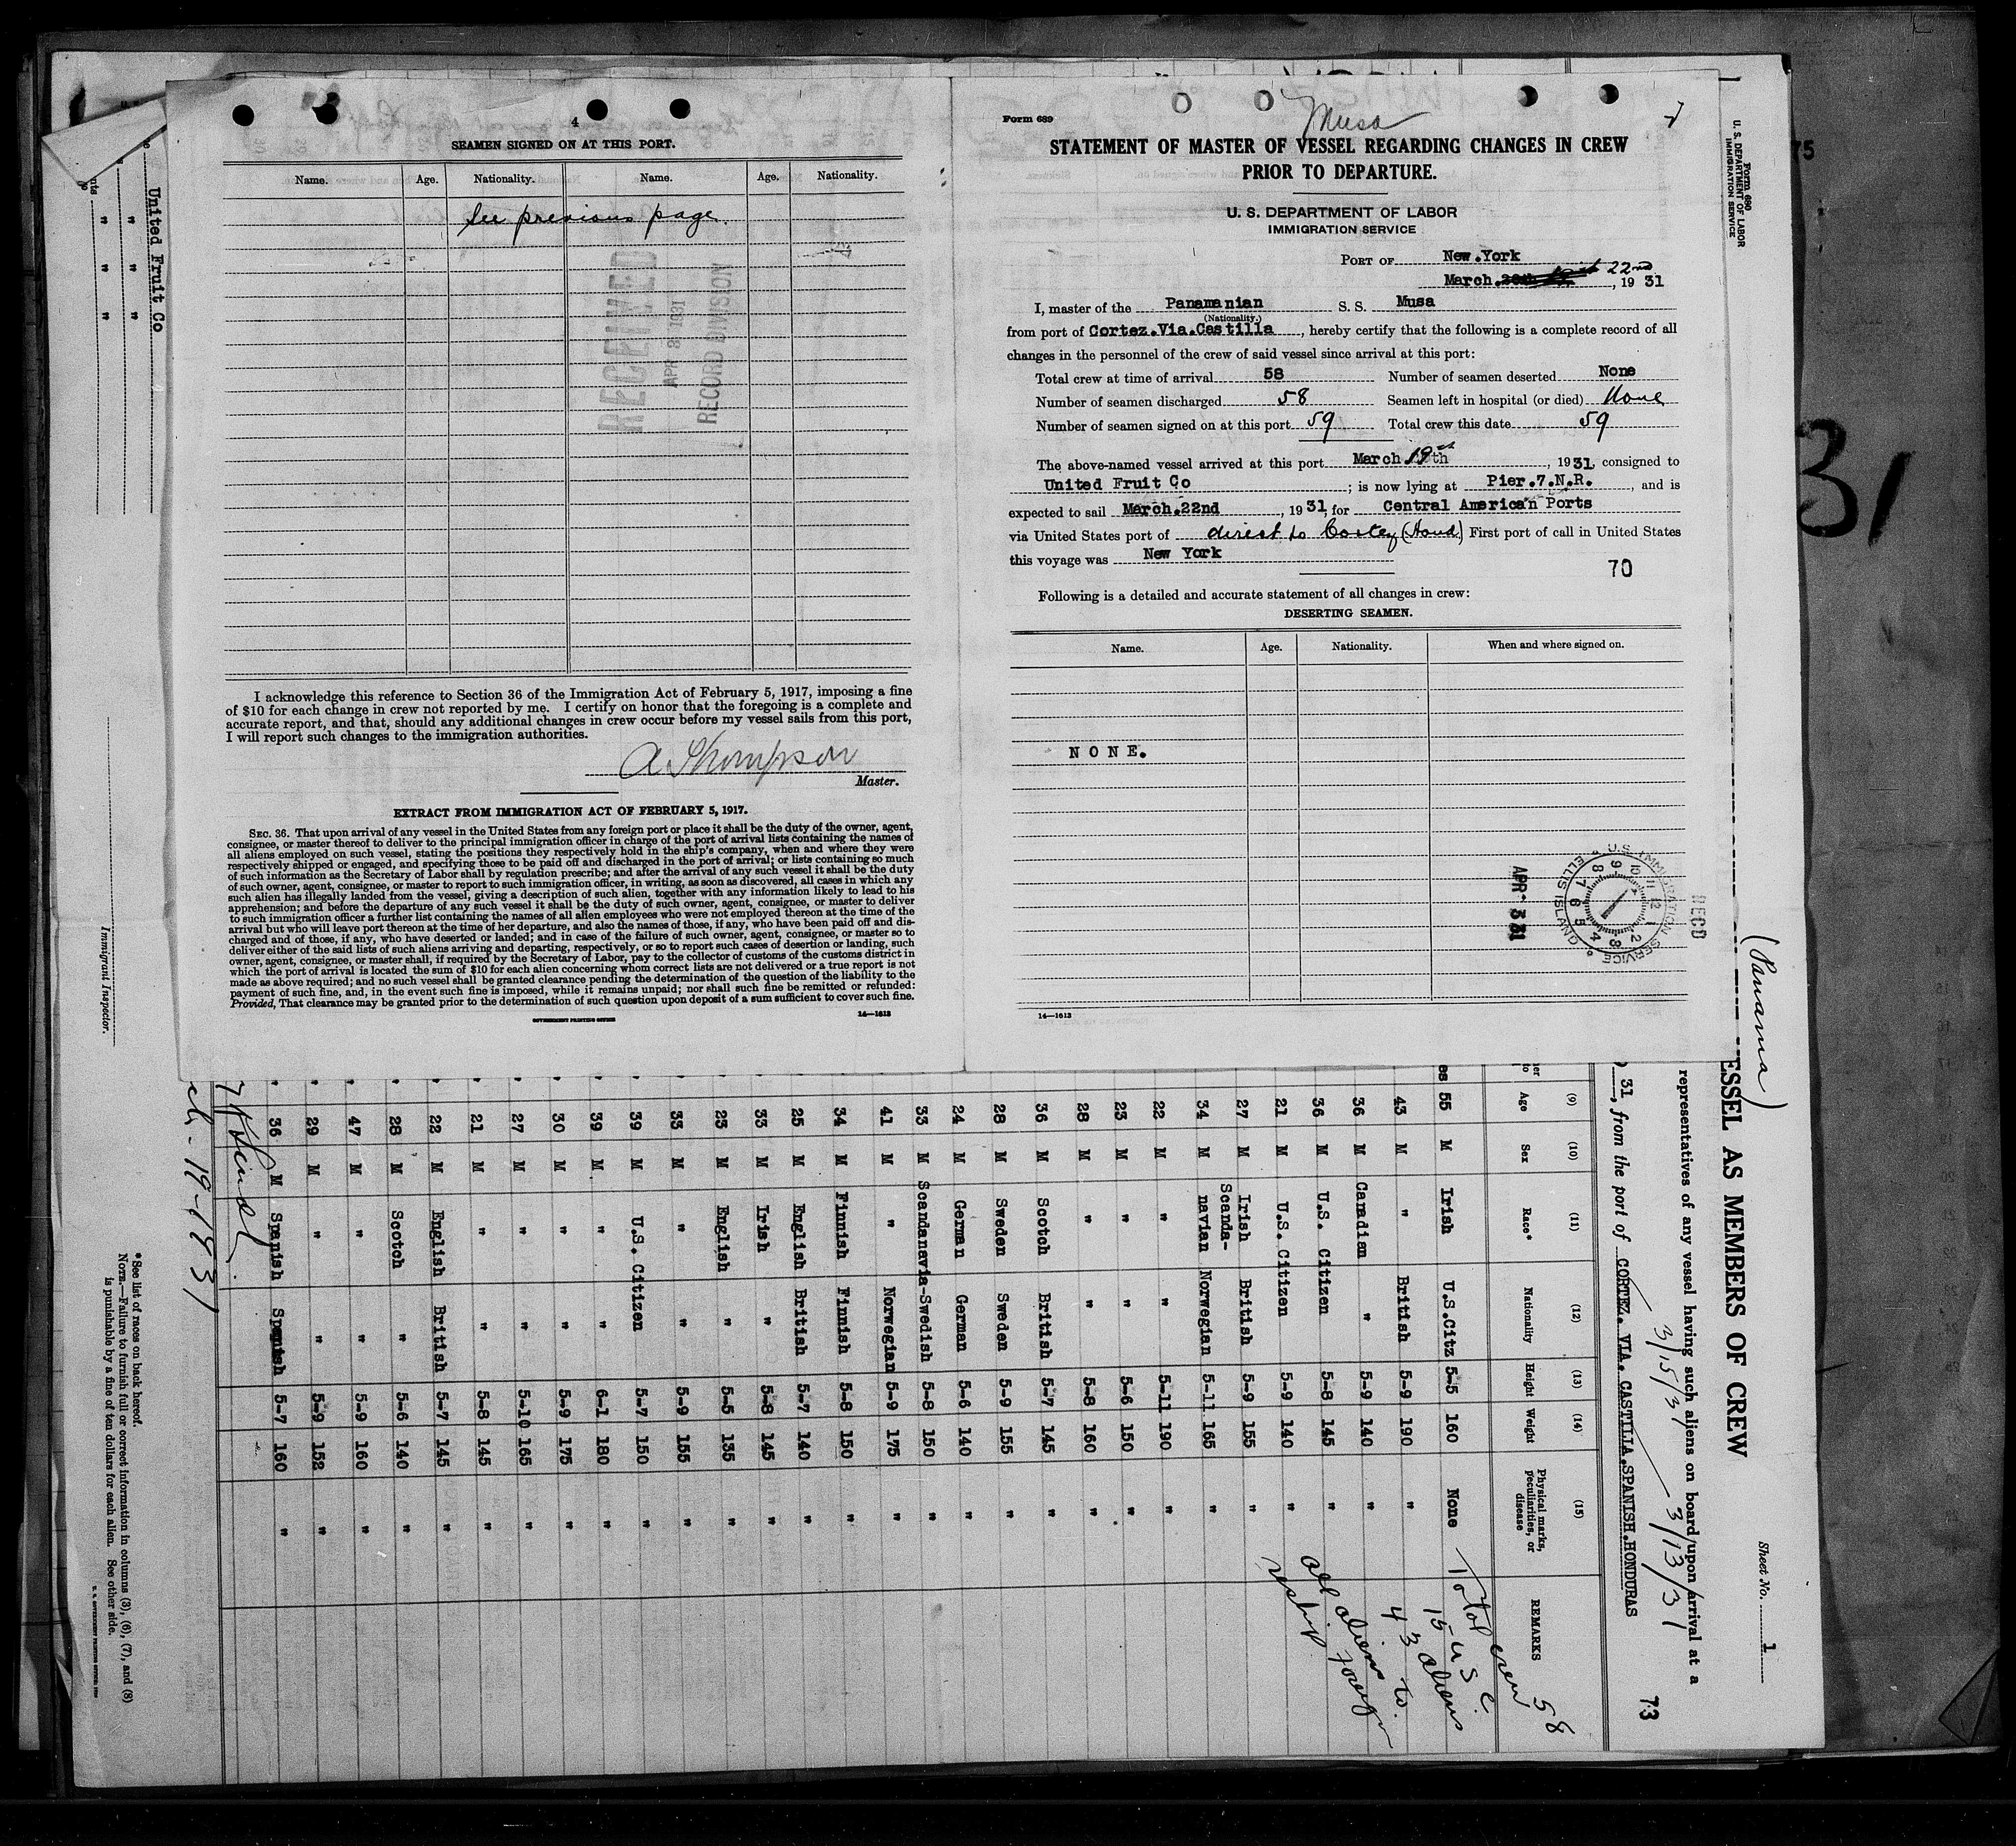 4
SEAMEN SIGNED ON AT THIS PORT.
Name. Age. Nationality. Name. Age. Nationality.
See previous page.
RECEIVED
APR 3 1931
RECORD DIVISION
I acknowledge this reference to Section 36 of the Immigration Act of February 5, 1917, imposing a fine
of $10 for each change in crew not reported by me. I certify on honor that the foregoing is a complete and
accurate report, and that, should any additional changes in crew occur before my vessel sails from this port,
I will report such changes to the immigration authorities.
A Thompson
Master.
EXTRACT FROM IMMIGRATION ACT OF FEBRUARY 5, 1917.
SEC. 36. That upon arrival of any vessel in the United States from any foreign port or place it shall be the duty of the owner, agent,
consignee, or master thereof to deliver to the principal immigration officer in charge of the port of arrival lists containing the names of
all aliens employed on such vessel, stating the positions they respectively hold in the ship's company, when and where they were
respectively shipped or engaged, and specifying those to be paid off and discharged in the port of arrival; or lists containing so much
of such information as the Secretary of Labor shall by regulation prescribe; and after the arrival of any such vessel it shall be the duty
of such owner, agent, consignee, or master to report to such immigration officer, in writing, as soon as discovered, all cases in which any
such alien has illegally landed from the vessel, giving a description of such alien, together with any information likely to lead to his
apprehension; and before the departure of any such vessel it shall be the duty of such owner, agent, consignee, or master to deliver
to such immigration officer a further list containing the names of all alien employees who were not employed thereon at the time of the
arrival but who will leave port thereon at the time of her departure, and also the names of those, if any, who have been paid off and dis-
charged and of those, if any, who have deserted or landed; and in case of the failure of such owner, agent, consignee, or master so to
deliver either of the said lists of such aliens arriving and departing, respectively, or so to report such cases of desertion or landing, such
owner, agent, consignee, or master shall, if required by the Secretary of Labor, pay to the collector of customs of the customs district in
which the port of arrival is located the sum of $10 for each alien concerning whom correct lists are not delivered or a true report is not
made as above required; and no such vessel shall be granted clearance pending the determination of the question of the liability to the
payment of such fine, and, in the event such fine is imposed, while it remains unpaid; nor shall such fine be remitted or refunded:
Provided, That clearance may be granted prior to the determination of such question upon deposit of a sum sufficient to cover such fine.
GOVERNMENT PRINTING OFFICE 14—1613
Form 689
Musa
STATEMENT OF MASTER OF VESSEL REGARDING CHANGES IN CREW
PRIOR TO DEPARTURE.
U. S. DEPARTMENT OF LABOR
IMMIGRATION SERVICE
PORT OF New.York
March 22nd, 1931
I, master of the Panamanian S. S. Musa
(Nationality.)
from port of Cortez.Via.Castilla, hereby certify that the following is a complete record of all
changes in the personnel of the crew of said vessel since arrival at this port:
Total crew at time of arrival 58 Number of seamen deserted None
Number of seamen discharged 58 Seamen left in hospital (or died) None
Number of seamen signed on at this port 59 Total crew this date 59
The above-named vessel arrived at this port March 19th, 1931, consigned to
United Fruit Co; is now lying at Pier.7.N.R., and is
expected to sail March.22nd, 1931, for Central American Ports
via United States port of direct to Cortez (Hond) First port of call in United States
this voyage was New York
70
Following is a detailed and accurate statement of all changes in crew:
DESERTING SEAMEN.
Name. Age. Nationality. When and where signed on.
NONE.
U.S. IMMIGRATION SERVICE ELLIS ISLAND
APR 3 31
RECD
14—1613
Form 690
U. S. DEPARTMENT OF LABOR
IMMIGRATION SERVICE
75
31
(Panama)
ESSEL AS MEMBERS OF CREW
Sheet No. 1
representatives of any vessel having such aliens on board upon arrival at a
3/15/31 3/13/31
31, from the port of CORTEZ. VIA. CASTILLA.SPANISH.HONDURAS
73
(9) (10) (11) (12) (13) (14) (15)
Age Sex Race* Nationality Height Weight Physical marks, peculiarities, or disease REMARKS
55 M Irish U.S.Citz 5-5 160 None
43 M " British 5-9 190 "
36 M Canadian " 5-9 140 "
36 M U.S. Citizen 5-8 145 "
21 M U.S. Citizen 5-9 140 "
27 M Irish British 5-9 155 "
34 M Scanda-navian Norwegian 5-11 165 "
22 M " " 5-11 190 "
23 M " " 5-6 150 "
28 M " " 5-8 160 "
36 M Scotch British 5-7 145 "
28 M Sweden Sweden 5-9 155 "
24 M German German 5-6 140 "
33 M Scandanavia-Swedish 5-8 150 "
41 M " Norwegian 5-9 175 "
34 M Finnish Finnish 5-8 150 "
25 M English British 5-7 140 "
33 M Irish " 5-8 145 "
23 M English " 5-5 135 "
33 M " " 5-9 155 "
39 M U.S. Citizen 5-7 150 "
39 M " " 6-1 180 "
30 M " " 5-9 175 "
27 M " " 5-10 165 "
21 M " " 5-8 145 "
22 M English British 5-7 145 "
28 M Scotch " 5-6 140 "
47 M " " 5-9 160 "
29 M " " 5-9 152 "
36 M Spanish Spanish 5-7 160 "
Total crew 58
15 U S C
43 aliens
all aliens to
reship foreign
ch-19-1931
*See list of races on back hereof.
NOTE.—Failure to furnish full or correct information in columns (3), (6), (7), and (8)
is punishable by a fine of ten dollars for each alien. See other side.
United Fruit Co
" " "
" " "
Immigrant Inspector.